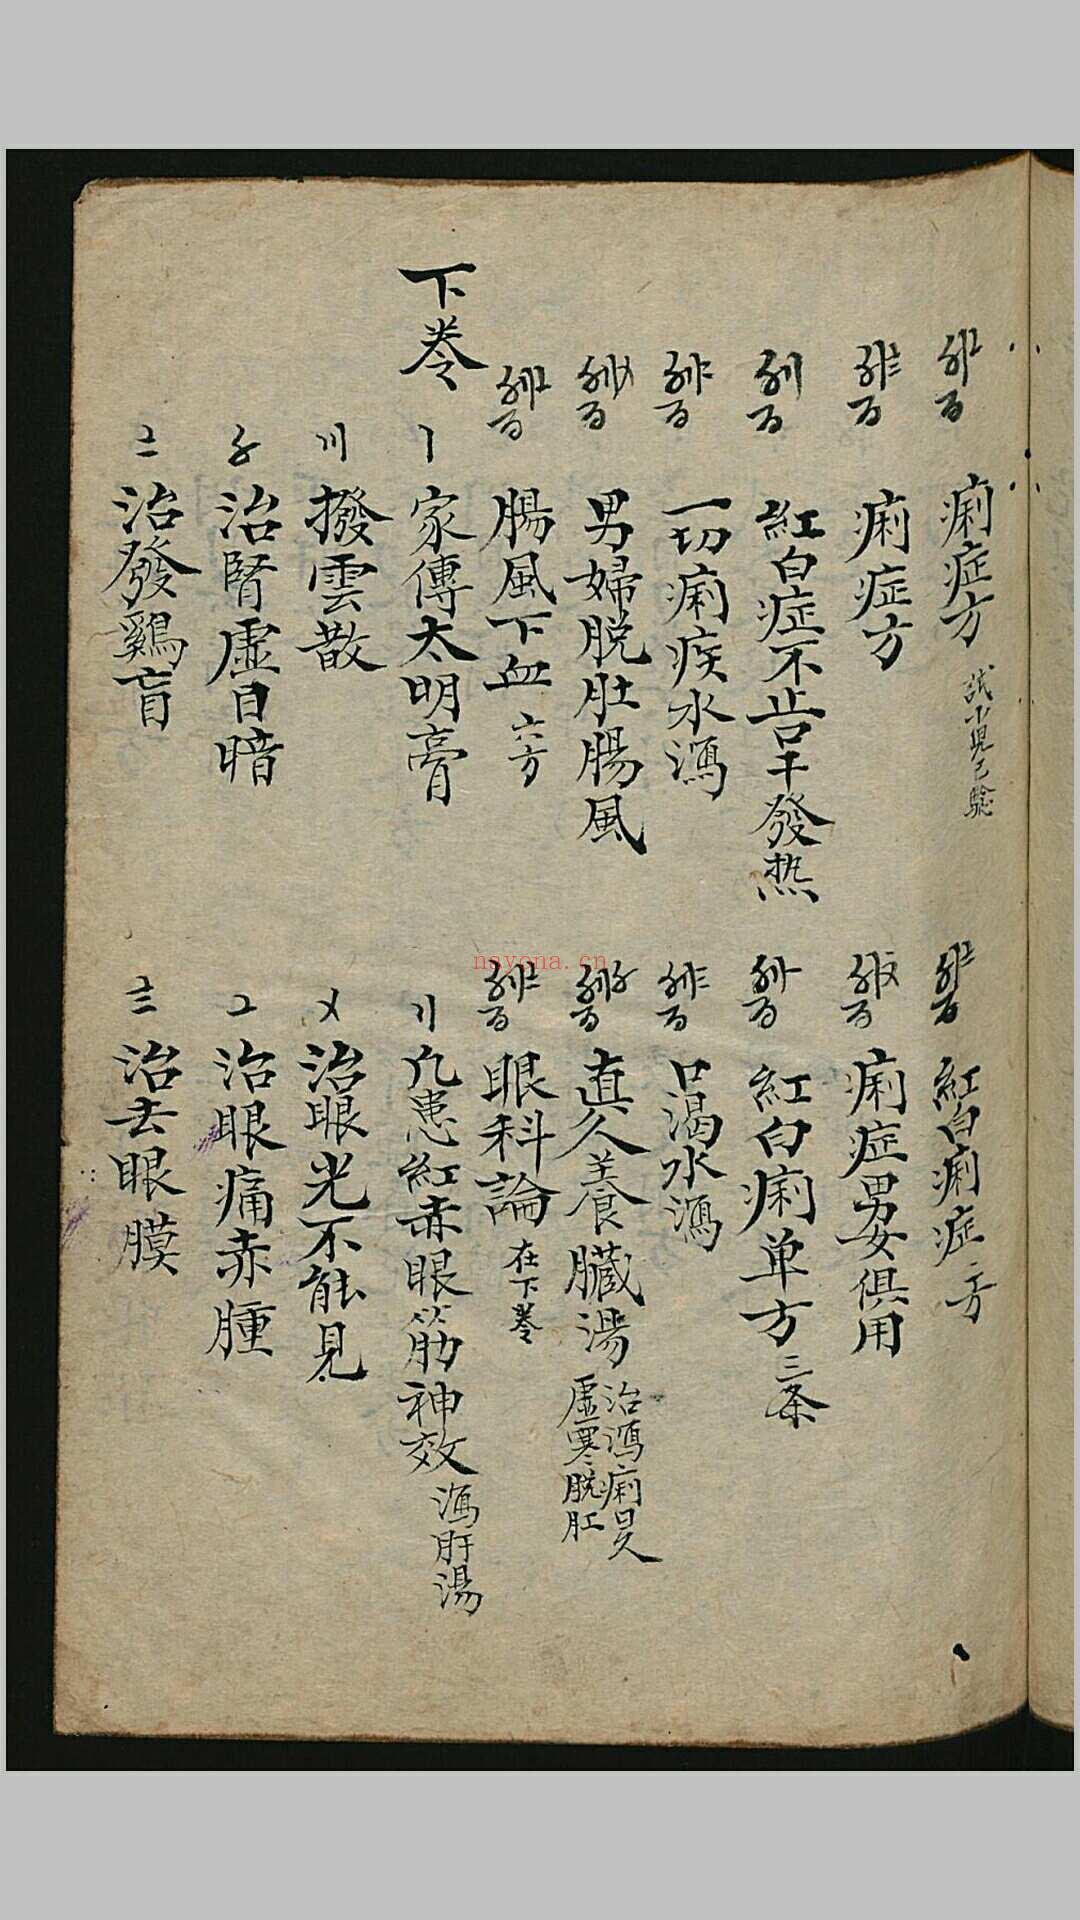 痢症方 試小兒已驗
紅白痢症 二方
痢症方
痢症男女俱用
紅白症不止旱發热
紅白痢单方 三条
一切痢疾水瀉
口渴水瀉
男婦脱肚腸風
真人養臟湯 治瀉痢日久虛寒脱肛
腸風下血 六方
眼科論 在下卷
下卷
〡 家傳太明膏
〢 凢患紅赤眼筋神效 瀉肝湯
〣 撥雲散
〤 治眼光不能見
治腎虛目暗
治眼痛赤腫
〧 治發鷄盲
〨 治去眼膜
nayona.cn